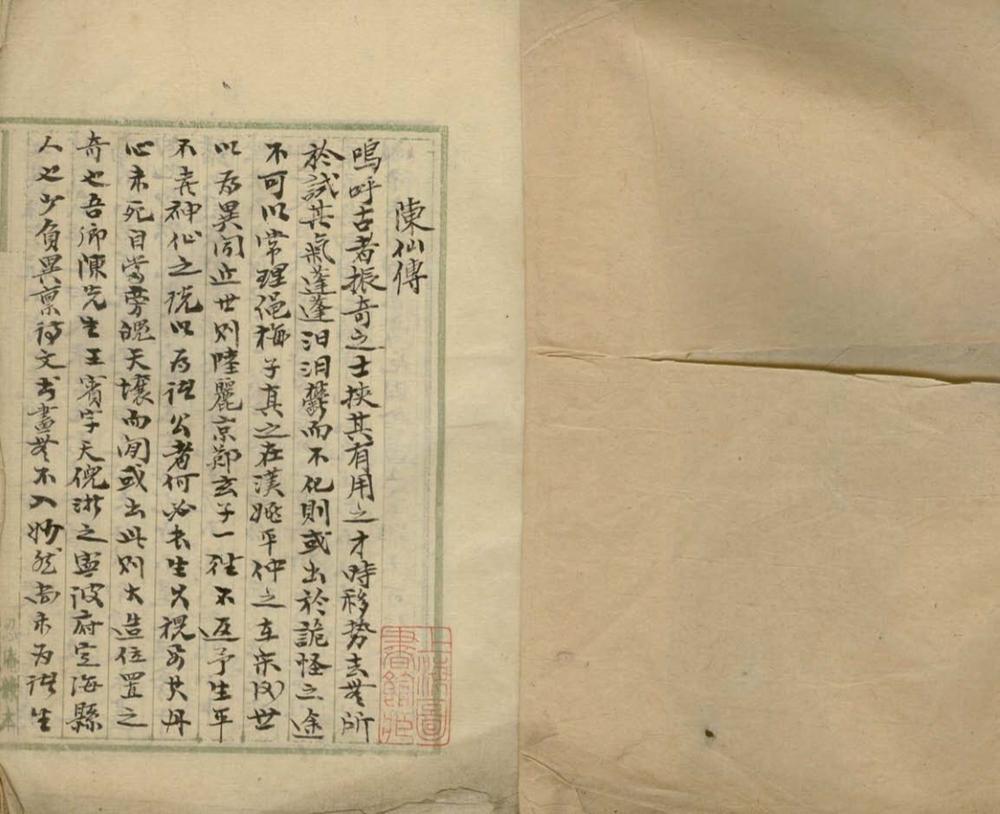 陳仙傳
嗚呼古者振奇之士挾其有用之才時移勢去無所
於試其氣蓬蓬汩汩鬱而不化則或出於詭怪之途
不可以常理繩梅子真之在漢姚平仲之在宋同世
以為異聞近世則陸麗京鄭玄子一往不返予生平
不喜神仙之說以為諸公者何必長生久視其丹
心未死自當旁魄天壤而間或出此則大造位置之
奇也吾鄉陳先生王賓字天倪浙之寧波府定海縣
人也少負異稟詩文書畫無不入妙然尚未為諸生
上海圖
書館藏